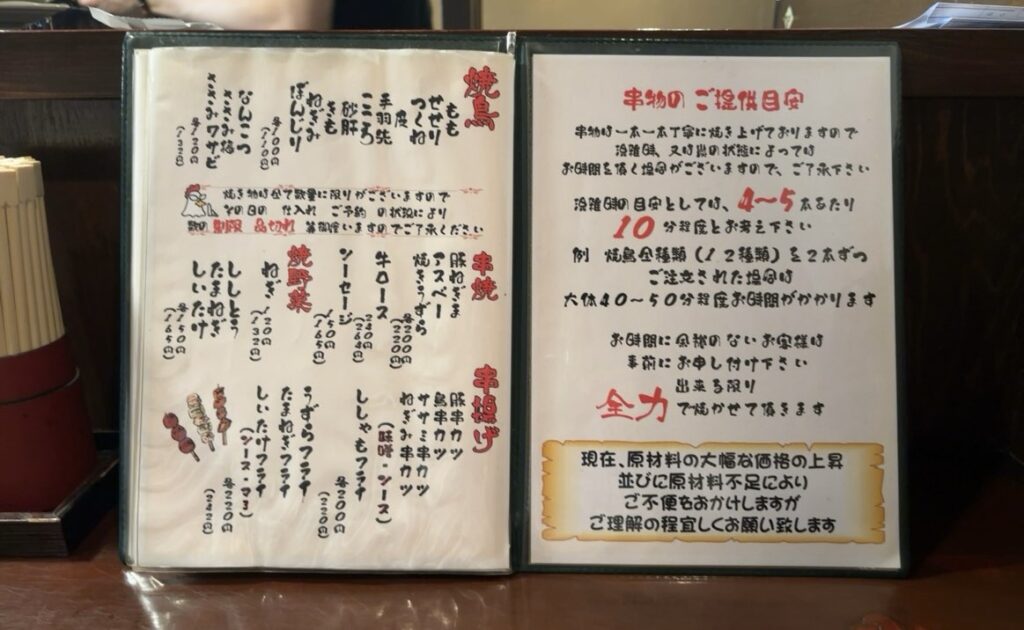 焼鳥
もも
せせり
つくね
皮
手羽先
こころ
砂肝
きも
ねぎみ
ぼんじり
各100円
(110円)
なんこつ
ささみ梅
ささみワサビ
各120円
(132円)
焼き物は全て数量に限りがございますので
その日の 仕入れ ご予約 の状況により
数の 制限 品切れ 等御座いますのでご了承ください
串焼
豚ねぎま
アスベー
焼きうずら
各200円
(220円)
牛ロース
240円
(264円)
ソーセージ
150円
(165円)
焼野菜
ねぎ
120円
(132円)
ししとう
たまねぎ
しいたけ
各150円
(165円)
串揚げ
豚串カツ
鳥串カツ
ササミ串カツ
ねぎみ串カツ
(味噌・ソース)
ししゃもフライ
各200円
(220円)
うずらフライ
たまねぎフライ
しいたけフライ
(ソース・マヨ)
各220円
(242円)
串物のご提供目安
串物は一本一本丁寧に焼き上げておりますので
混雑時、又は炭の状態によっては
お時間を頂く場合がございますので、ご了承下さい
混雑時の目安としては、4〜5本あたり
10分程度とお考え下さい
例 焼鳥全種類(12種類)を2本ずつ
ご注文された場合は
大体40〜50分程度お時間がかかります
お時間に余裕のないお客様は
事前にお申し付け下さい
出来る限り
全力で焼かせて頂きます
現在、原材料の大幅な価格の上昇
並びに原材料不足により
ご不便をおかけしますが
ご理解の程宜しくお願い致します